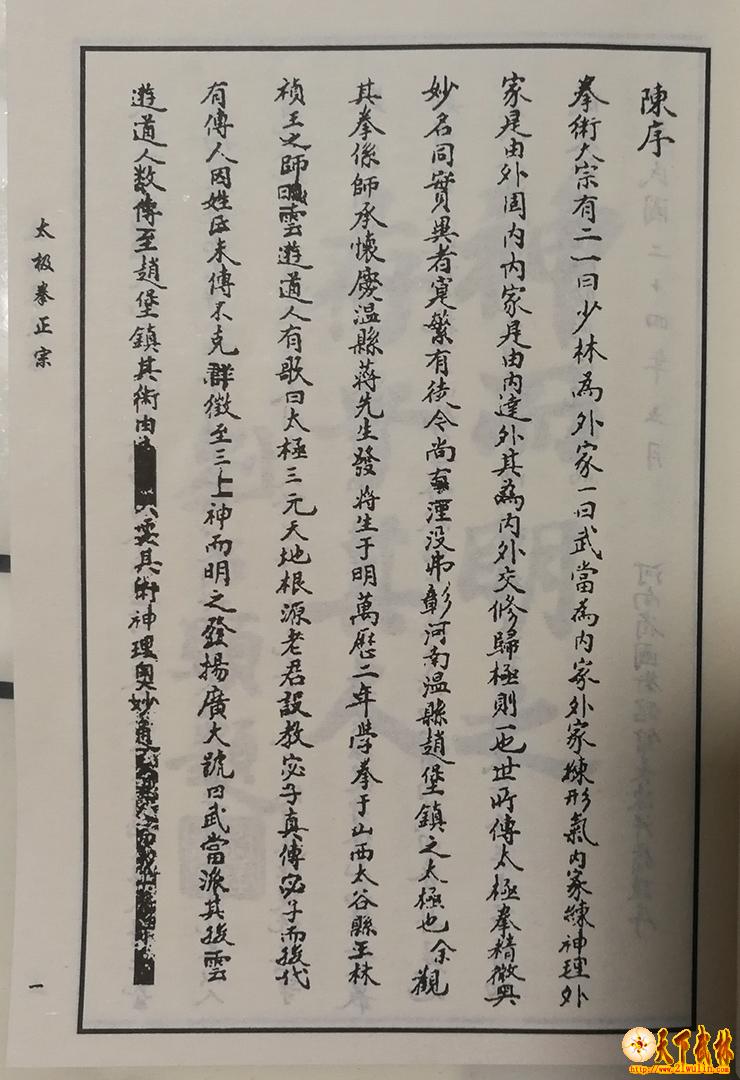 陳序
拳術大宗有二一曰少林為外家一曰武當為內家外家練形氣內家練神理外
家是由外固內內家是由內達外其為內外交修歸極則一也世所傳太極拳精微奧
妙名同實異者寔繁有徒今尚有湮没弗彰河南温縣趙堡鎮之太極也余觀
其拳係師承懷慶温縣蔣先生發將生于明萬歷二年學拳于山西太谷縣王林
禎王之師曰雲遊道人有歌曰太極三元天地根源老君設教宓子真傳宓子而後代
有傳人因姓氏未傳不克群徵至三丰神而明之發揚廣大號曰武當派其後雲
遊道人数傳至趙堡鎮其術由其術神理奥妙
太极拳正宗
一
天下武林
http://www.21wulin.com